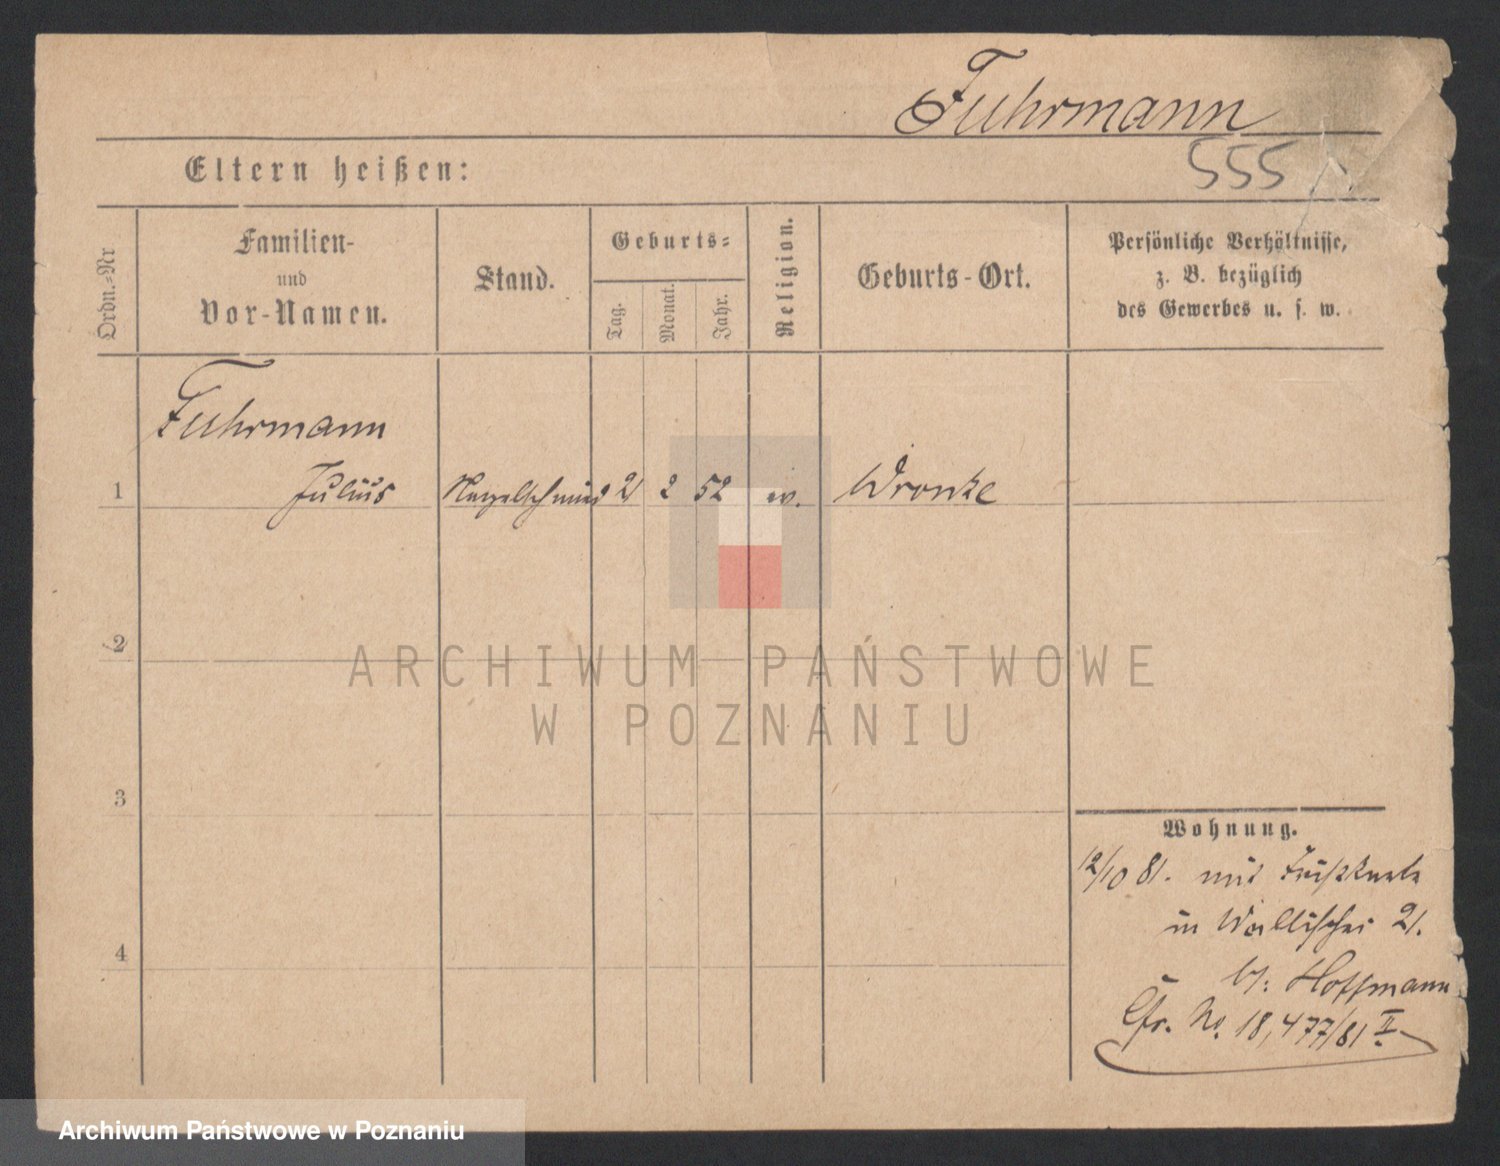 Fuhrmann
Eltern heißen:
555
Ordn.=Nr
Familien-
und
Vor-Namen.
Stand.
Geburts=
Tag.
Monat.
Jahr.
Religion.
Geburts-Ort.
Persönliche Verhältnisse,
z. B. bezüglich
des Gewerbes u. s. w.
Fuhrmann
1 Julius Nagelschmied 2 52 ev. Wronke
2
ARCHIWUM PAŃSTWOWE
W POZNANIU
3
Wohnung.
12/10 81. mit
in Wallischei 21.
b/: Hoffmann
4
Cfr. No. 18,477/81 II.
Archiwum Państwowe w Poznaniu